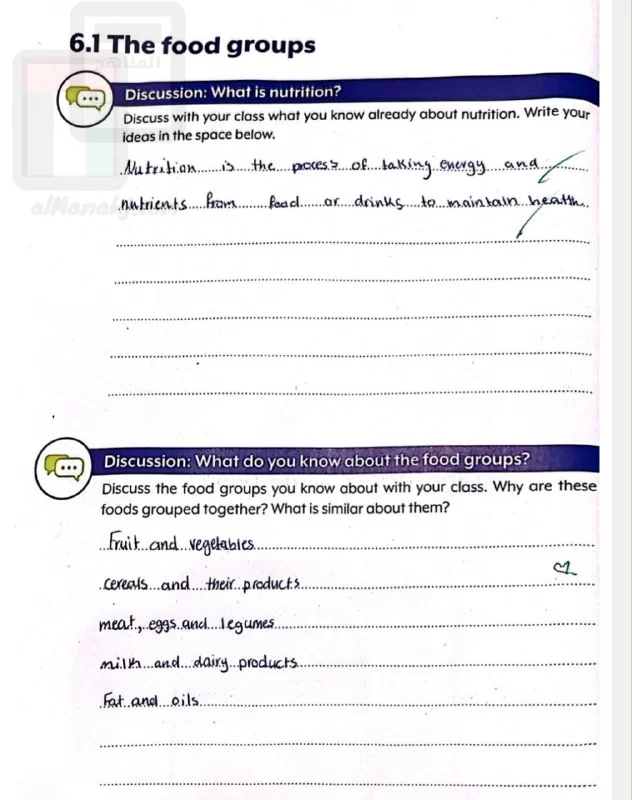 المناهج
6.1 The food groups
Discussion: What is nutrition?
Discuss with your class what you know already about nutrition. Write your
ideas in the space below.
Nutrition is the process of taking energy and
nutrients from food or drinks to maintain health.
Discussion: What do you know about the food groups?
Discuss the food groups you know about with your class. Why are these
foods grouped together? What is similar about them?
Fruit and vegetables
cereals and their products
meat, eggs and legumes
milk and dairy products
Fat and oils